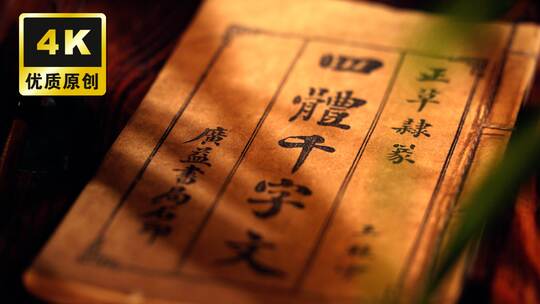 4K
优质原创
正草隸篆
四體千字文
廣益書局石印